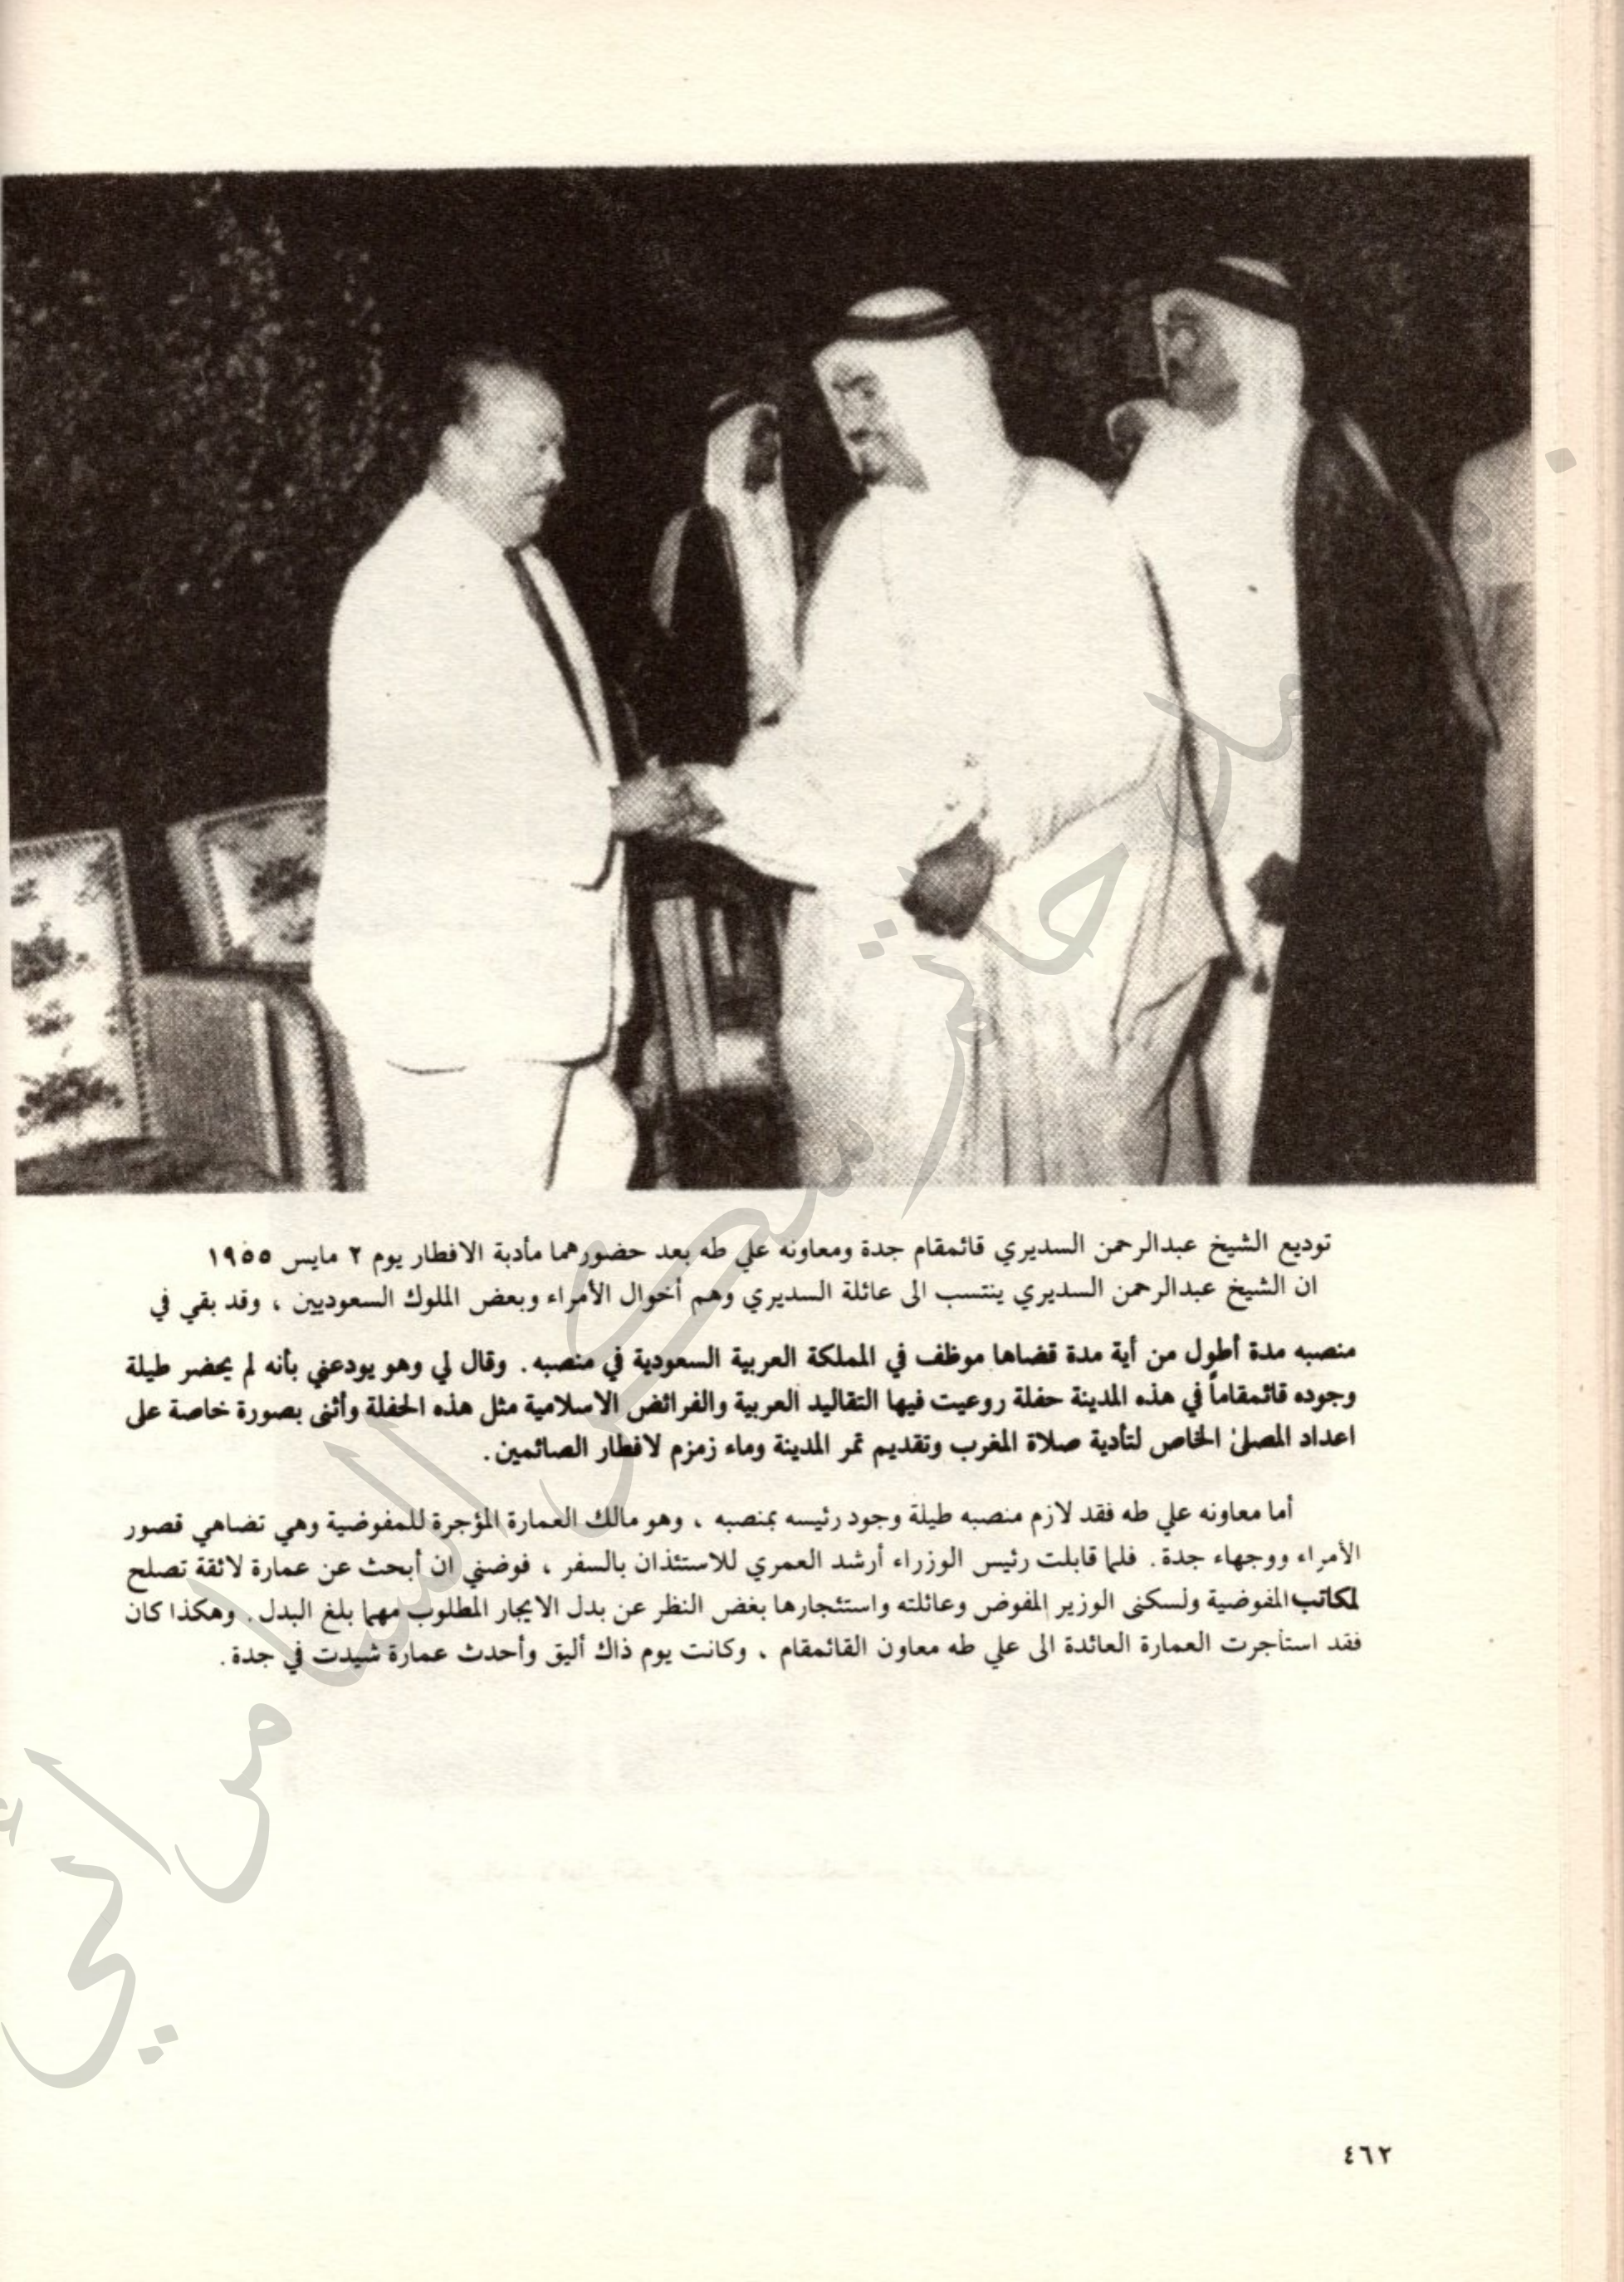 توديع الشيخ عبدالرحمن السديري قائمقام جدة ومعاونه علي طه بعد حضورهما مأدبة الافطار يوم ٢ مايس ١٩٥٥
ان الشيخ عبدالرحمن السديري ينتسب الى عائلة السديري وهم أخوال الأمراء وبعض الملوك السعوديين ، وقد بقي في
منصبه مدة أطول من أية مدة قضاها موظف في المملكة العربية السعودية في منصبه . وقال لي وهو يودعني بأنه لم يحضر طيلة
وجوده قائمقاماً في هذه المدينة حفلة روعيت فيها التقاليد العربية والفرائض الاسلامية مثل هذه الحفلة وأثنى بصورة خاصة على
اعداد المصلى الخاص لتأدية صلاة المغرب وتقديم تمر المدينة وماء زمزم لافطار الصائمين .
أما معاونه علي طه فقد لازم منصبه طيلة وجود رئيسه بمنصبه ، وهو مالك العمارة المؤجرة للمفوضية وهي تضاهي قصور
الأمراء ووجهاء جدة . فلما قابلت رئيس الوزراء أرشد العمري للاستئذان بالسفر ، فوضني ان أبحث عن عمارة لائقة تصلح
لمكاتب المفوضية ولسكنى الوزير المفوض وعائلته واستئجارها بغض النظر عن بدل الايجار المطلوب مهما بلغ البدل . وهكذا كان
فقد استأجرت العمارة العائدة الى علي طه معاون القائمقام ، وكانت يوم ذاك أليق وأحدث عمارة شيدت في جدة .
٤٦٢